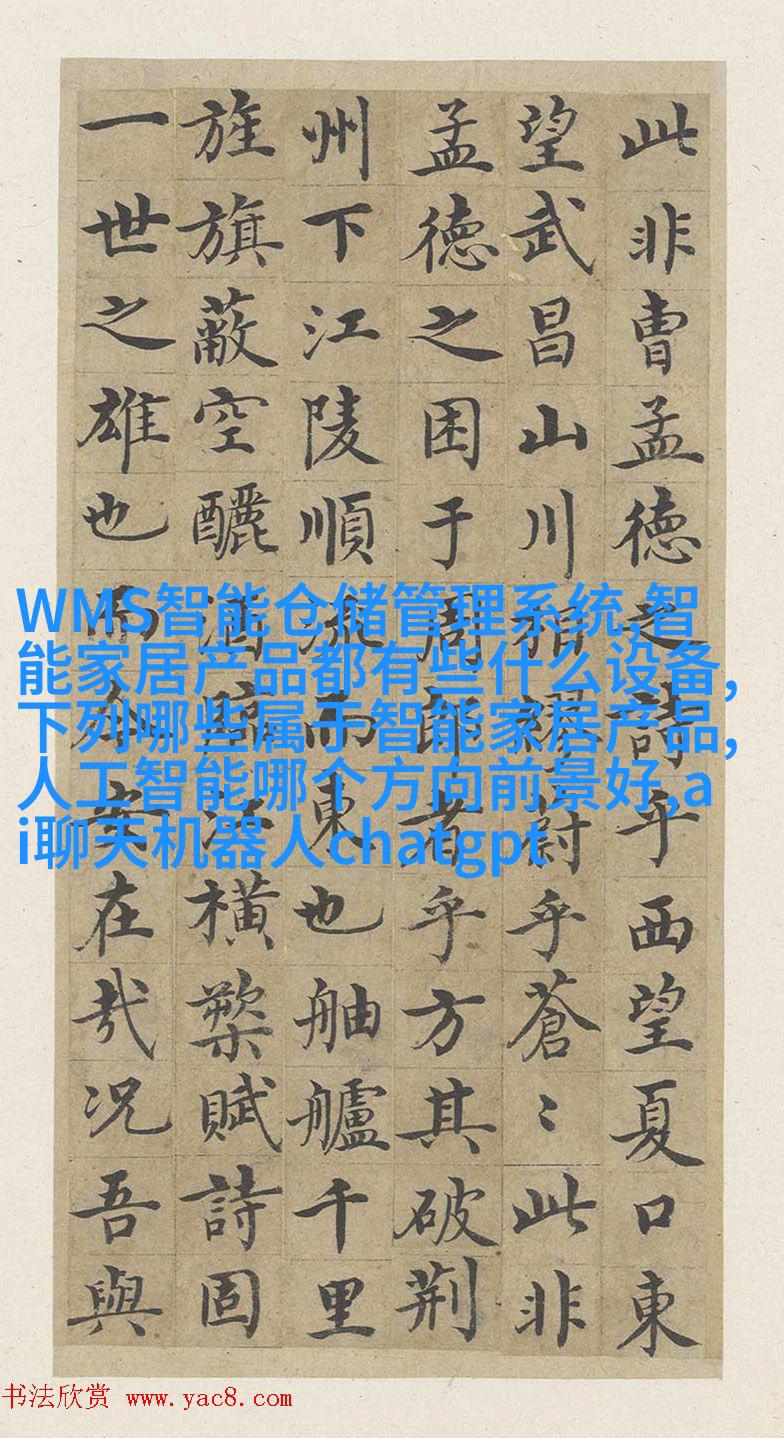 此非曹孟德之詩乎西望夏口東
望武昌山川相繆蔚乎蒼〻此非
孟德之困于周郎者乎方其破荆
州下江陵順流而東也舳艫千里
旌旗蔽空釃酒臨江横槊賦詩固
一世之雄也而今安在哉况吾與
WMS智能仓储管理系统,智
能家居产品都有些什么设备,
下列哪些属于智能家居产品,
人工智能哪个方向前景好,a
i聊天机器人chatgpt
书法欣赏 www.yac8.com